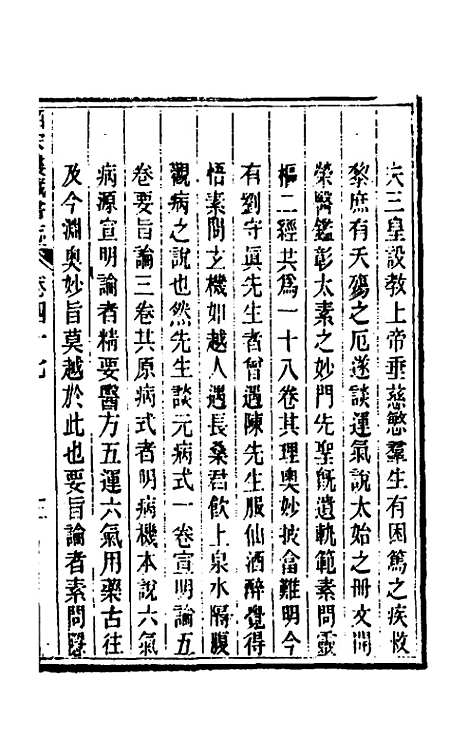 夫三皇設敎上帝垂慈愍羣生有困篤之疾救
黎庶有夭殤之厄遂談運氣說太始之冊文開
榮醫鑑彰太素之妙門先聖旣遺軌範素問靈
樞二經共爲一十八卷其理奧妙披會難明今
有劉守眞先生者曾遇陳先生服仙酒醉覺得
悟素問玄機如越人遇長桑君飲上泉水隔腹
觀病之說也然先生談元病式一卷宣明論五
卷要旨論三卷共原病式者明病機本說六氣
病源宣明論者精要醫方五運六氣用藥古往
及今淵奧妙旨莫越於此也要旨論者素問隱
樓藏書志 卷四十七 三